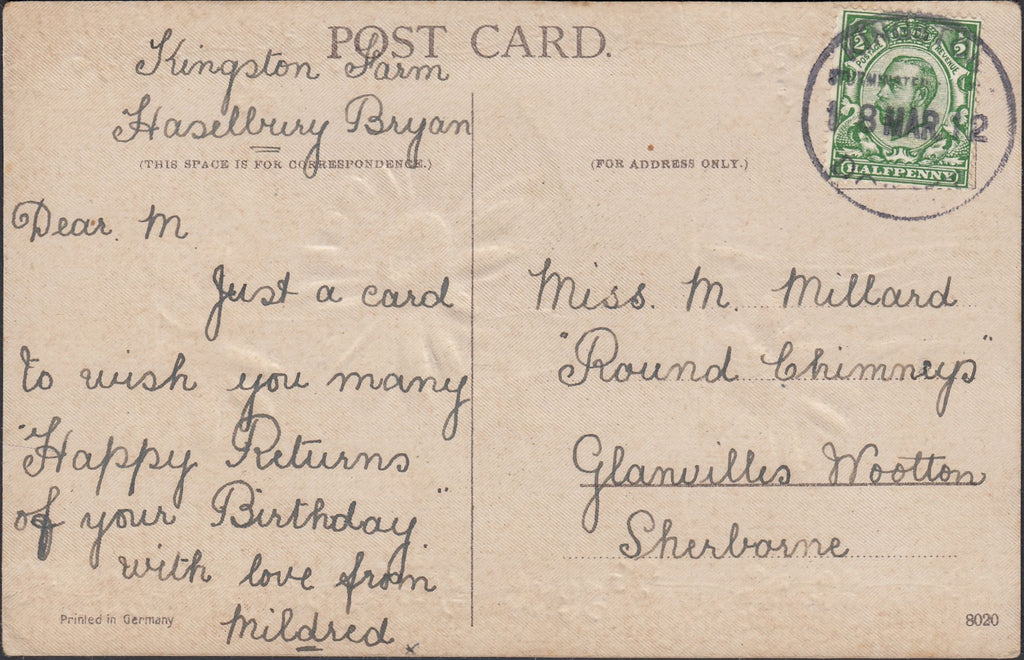 POST CARD.
Kingston Farm
Haselbury Bryan
(THIS SPACE IS FOR CORRESPONDENCE.)
Dear. M
Just a card
to wish you many
"Happy Returns
of your Birthday"
with love from
Mildred. x
Printed in Germany
(FOR ADDRESS ONLY.)
Miss. M. Millard
"Round Chimneys"
Glanvilles Wootton
Sherborne
8020
POSTAGE REVENUE
HALFPENNY
8 MAR 12